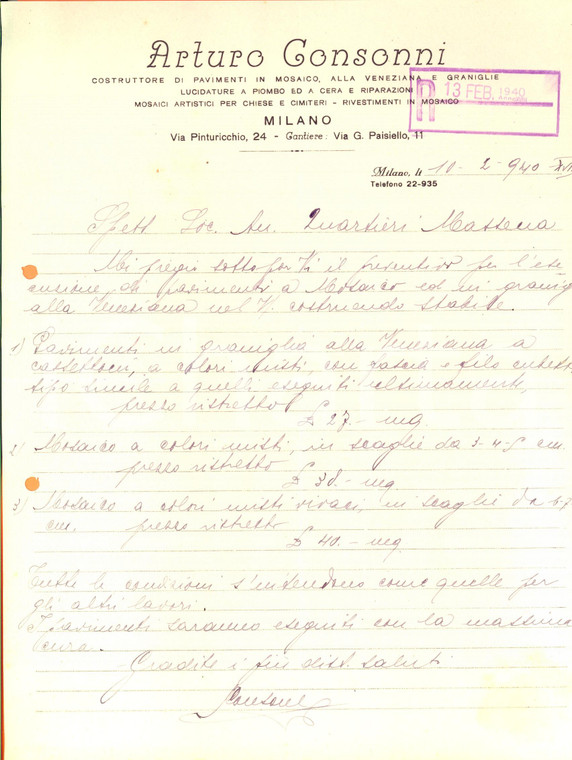 Arturo Consonni
COSTRUTTORE DI PAVIMENTI IN MOSAICO, ALLA VENEZIANA E GRANIGLIE
LUCIDATURE A PIOMBO ED A CERA E RIPARAZIONI
MOSAICI ARTISTICI PER CHIESE E CIMITERI - RIVESTIMENTI IN MOSAICO
MILANO
Via Pinturicchio, 24 - Cantiere: Via G. Paisiello, 11
R 13 FEB. 1940
Milano, li 10 - 2 - 940 XVIII
Telefono 22-935
Spett Soc. An. Quartieri Massena
Mi pregio sottoporVi il preventivo per l'ese
cuzione di pavimenti a Mosaico ed in graniglia
alla Veneziana nel V. costruendo stabile.
1) Pavimenti in graniglia alla Veneziana a
cassettoni, a colori misti, con fascia e filo
tipo simile a quelli eseguiti ultimamente,
prezzo ristretto
£ 27.- mq.
2) Mosaico a colori misti, in scaglie da 3-4-5 cm.
prezzo ristretto
£ 38.- mq
3) Mosaico a colori misti vivaci, in scaglie da 6-7
cm. prezzo ristretto
£ 40.- mq.
Tutte le condizioni s'intendono come quelle per
gli altri lavori.
I pavimenti saranno eseguiti con la massima
cura.
Gradite i più dist. saluti
Consonni